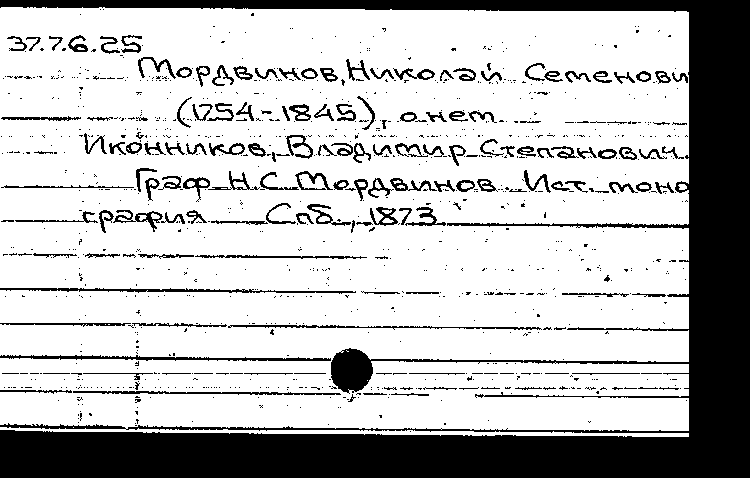 37.7.6.25
Мордвинов, Николай Семенови
(1754-1845), о нем.
Иконников, Владимир Степанович.
Граф Н.С. Мордвинов. Ист. моно
графия Спб., 1873.